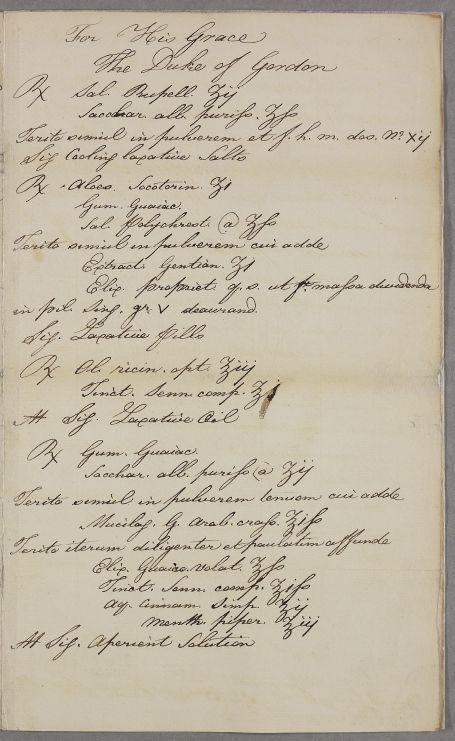 For His Grace
The Duke of Gordon
℞ Sal. Rupell. ʒij
Sacchar. alb. puriss. ʒss
Terito simul in pulverem et f. h. m. dos. No. xij
Sig Cooling laxative Salts
℞ Aloes. Socotorin. ʒi
Gum. Guaiac.
Sal. Polychrest. ā ʒss
Terito simul in pulverem cui adde
Extract. Gentian. ʒi
Elix. propriet. q. s. ut ft. massa dividenda
in pil. sing. gr. v deaurand.
Sig. Laxative Pills
℞ Ol. ricin. opt. ʒiij
Tinct. Senn. comp. ʒi
M Sig. Laxative Oil
℞ Gum. Guaiac.
Sacchar. alb. puriss ā ʒij
Terito simul in pulverem tenuem cui adde
Mucilag. G. Arab. crass. ʒiss
Terito iterum diligenter et paulatim affunde
Elix. Guaiac. volat. ʒss
Tinct. Senn. comp. ʒiss
Aq. Cinnam. Simp. ʒij
Menth. piper. ʒiij
M Sig. Aperient Solution